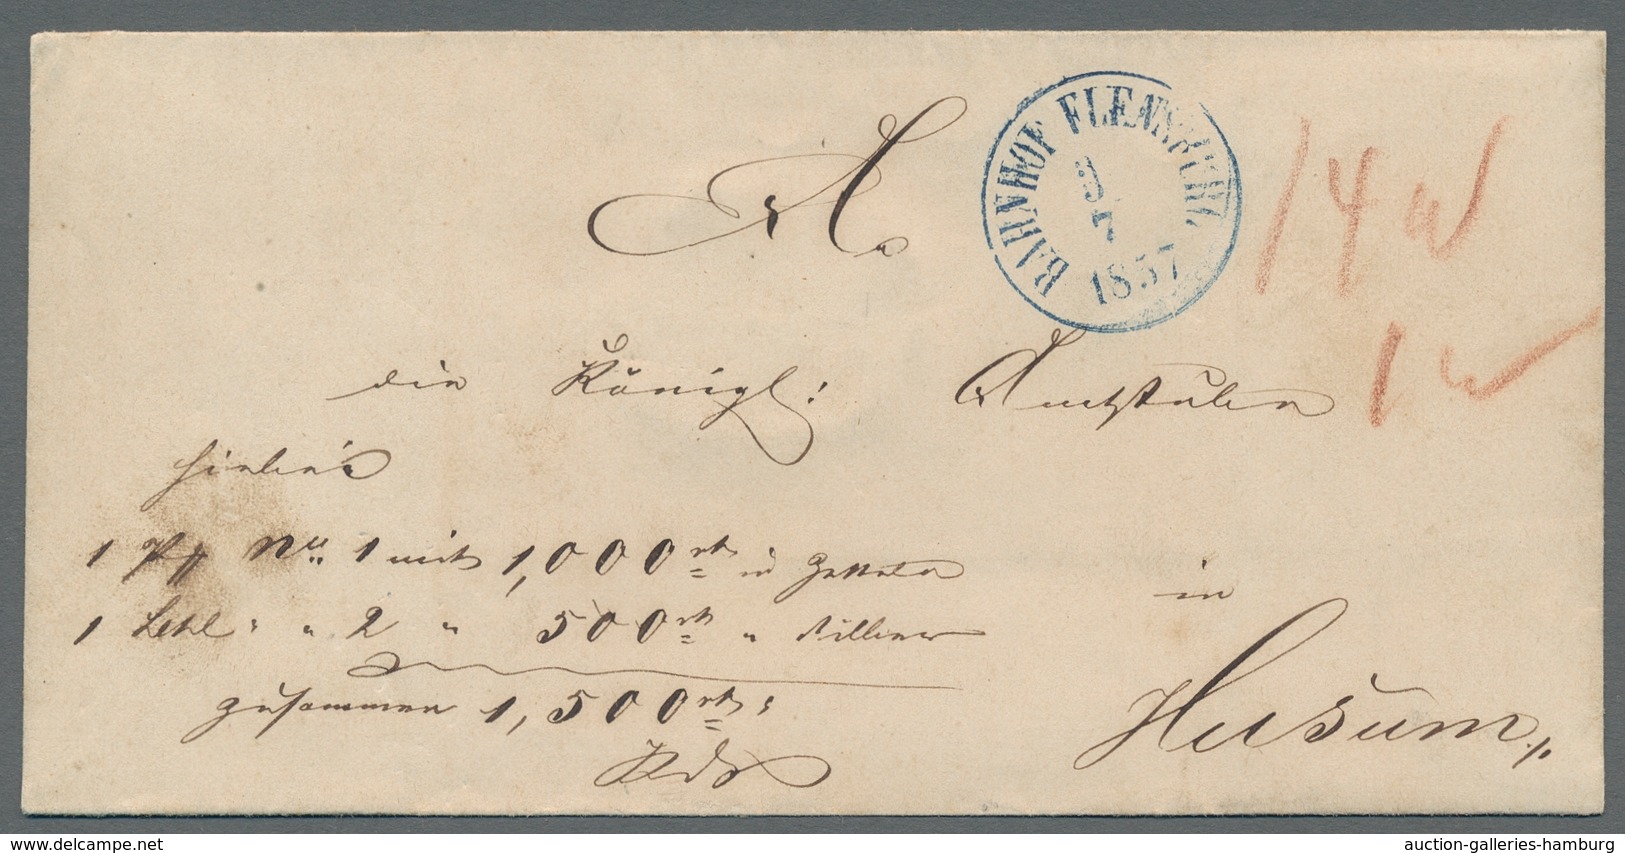 BAHNHOF FLENSBURG
3
7
1857
14
1
A.
die Königl: Amtstube
hiebei:
1 No. 1 mit 1,000 rt in Zetteln
1 " 2 " 500 rt " Silber
zusammen 1,500 rt:
in
Husum
delcampe.net
auction-galleries-hamburg